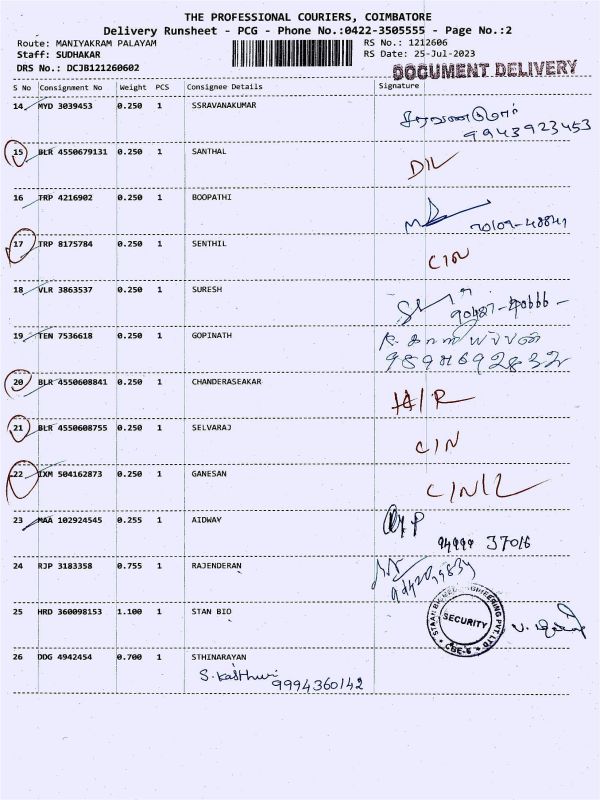 THE PROFESSIONAL COURIERS, COIMBATORE
Delivery Runsheet - PCG - Phone No.:0422-3505555 - Page No.:2
Route: MANIYAKRAM PALAYAM RS No.: 1212606
Staff: SUDHAKAR RS Date: 25-Jul-2023
DRS No.: DCJB121260602 DOCUMENT DELIVERY
S No Consignment No Weight PCS Consignee Details Signature
14 MYD 3039453 0.250 1 SSRAVANAKUMAR
சரவணகுமார்
9943923453
15 BLR 4550679131 0.250 1 SANTHAL
D/L
16 TRP 4216902 0.250 1 BOOPATHI
17 TRP 8175784 0.250 1 SENTHIL
C/N
18 VLR 3863537 0.250 1 SURESH
19 TEN 7536618 0.250 1 GOPINATH
20 BLR 4550608841 0.250 1 CHANDERASEAKAR
21 BLR 4550608755 0.250 1 SELVARAJ
C/N
22 IXM 504162873 0.250 1 GANESAN
23 MAA 102924545 0.255 1 AIDWAY
94999 37016
24 RJP 3183358 0.755 1 RAJENDERAN
25 HRD 360098153 1.100 1 STAN BIO
SECURITY
CBE-6
26 DDG 4942454 0.700 1 STHINARAYAN
S. Kasthuri
9994360142